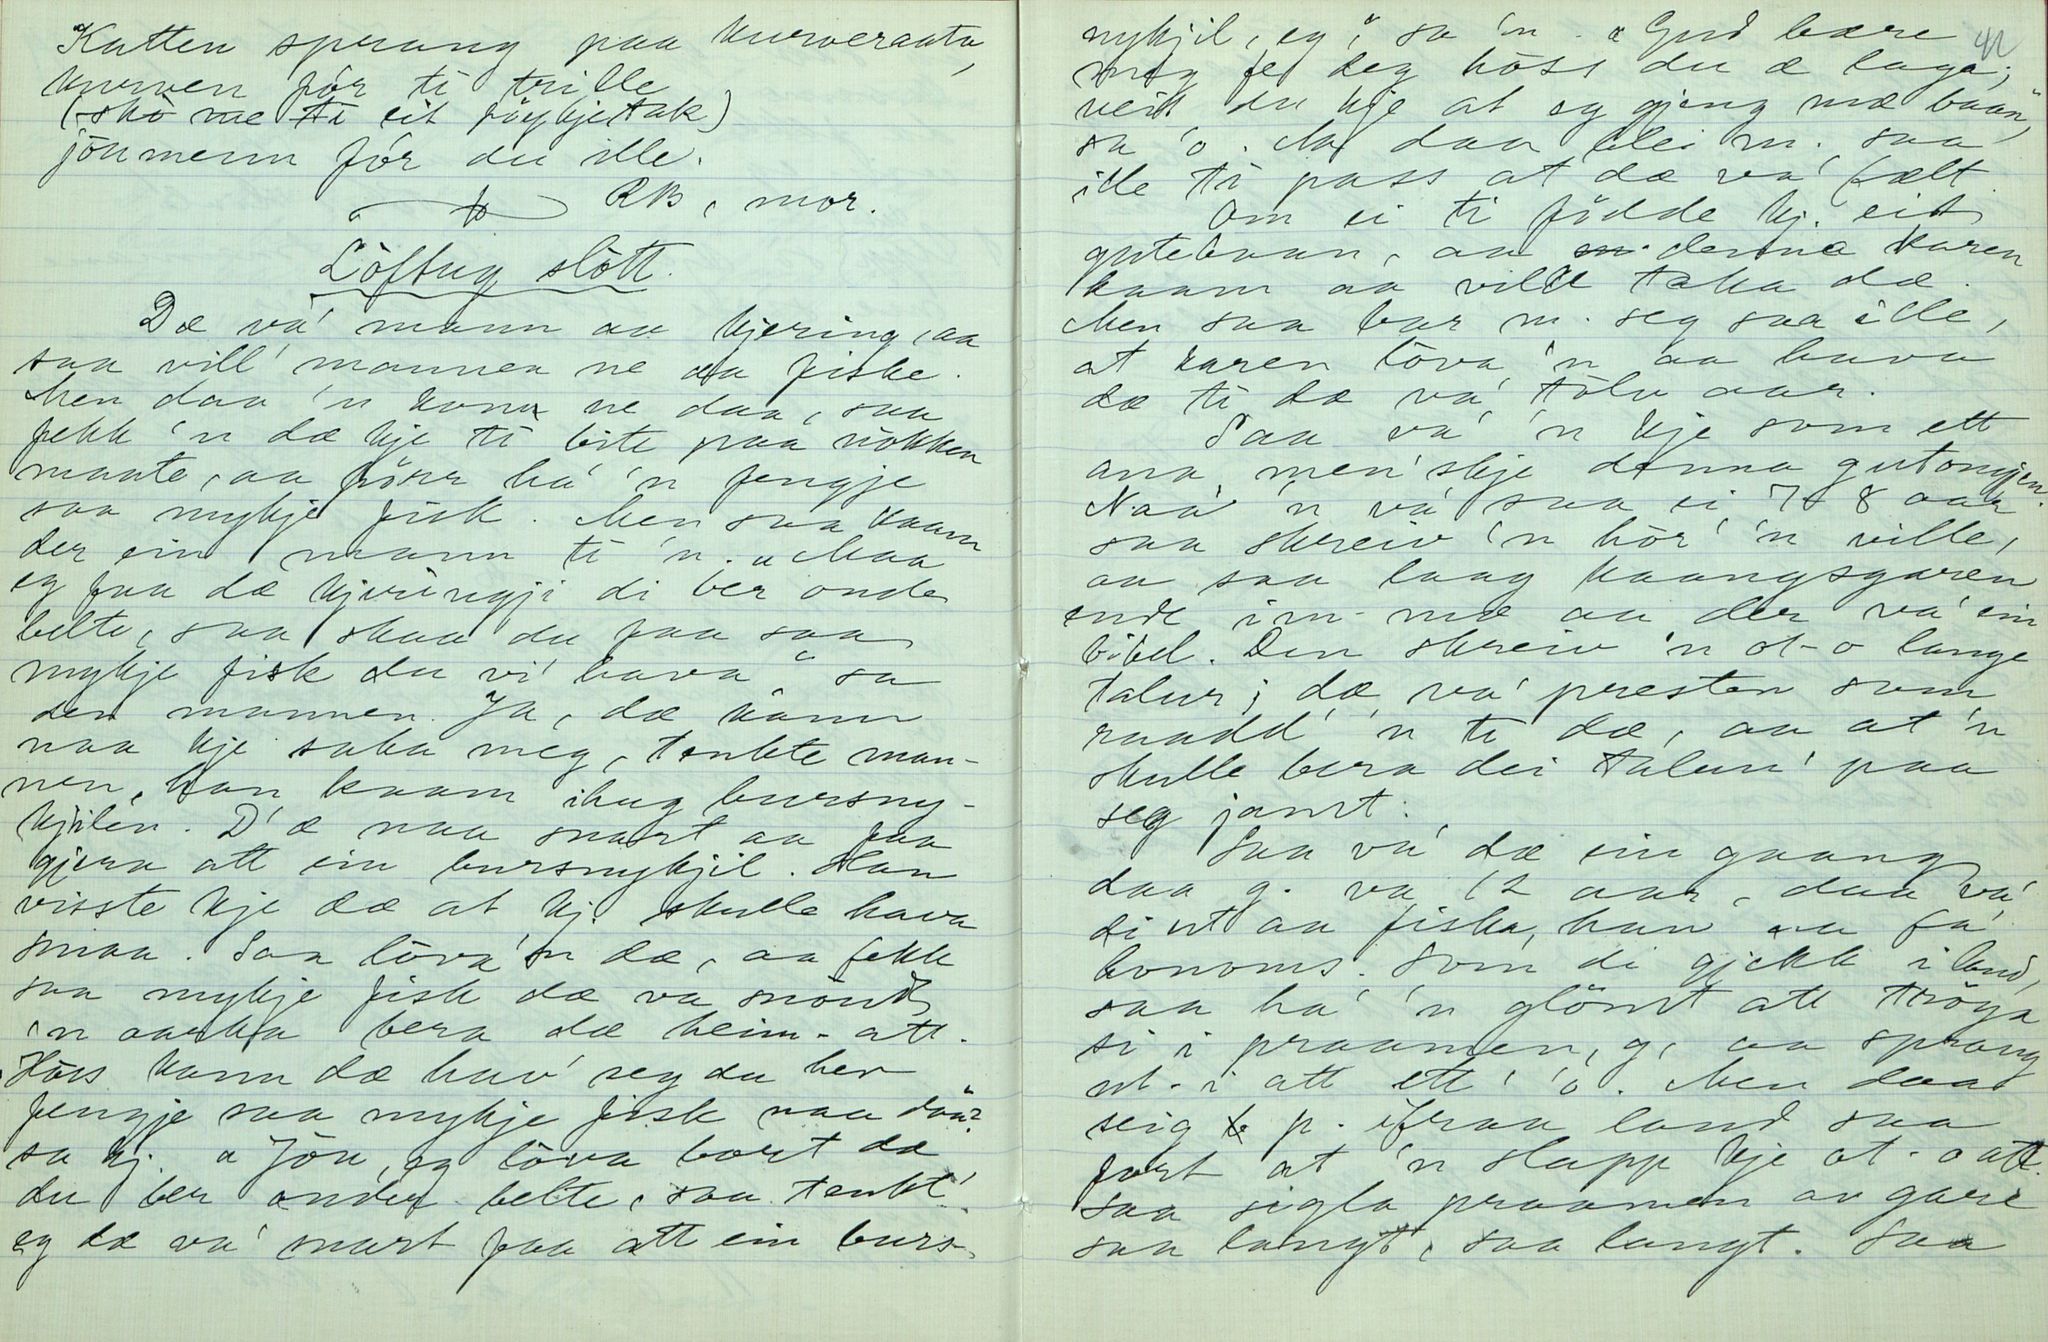 Katten sprang paa kurveraata,
kurven fór ti trille
(skó me ti eit föykjetak)
jönmenn fór du ille.
RB, mor.
Löftug slött.
Dæ va' mann aa kjering, aa
saa vill' mannen ne aa fiske.
Men daa 'n kom ne daa, saa
fekk 'n dæ kje ti bite paa nökken
maate, aa förr ha' 'n fengje
saa mykje fisk. Men saa kaam
der ein mann ti 'n. "Maa
eg faa dæ kjeringji di ber onde
belte, saa skaa du faa saa
mykje fisk du vi' hava" sa
den mannen. Ja, dæ kann
naa kje saka meg, tenkte man-
nen, han kaam ihug bursny-
kjilen. D'æ naa snart aa faa
gjera att ein bursnykjil. Han
visste kje dæ at kj. skulle hava
smaa. Saa lova 'n dæ, aa fekk
saa mykje fisk dæ va snöudt
'n aarka bera dæ heim-att.
Höss kann dæ hav' seg du her
fengje saa mykje fisk naa daa?
sa kj. "Jöu, eg lova bort dæ
du ber onder belte, saa tenkt'
eg dæ va' snart faa att ein burs-
41
nykjil, eg", sa 'n. "Gud bære
meg fe deg höss du æ laga;
veit du kje at eg gjeng mæ baan",
sa 'o. Ja daa blei m. saa
ille ti pass at dæ va' fælt.
Om ei ti födde kj. eit
gutebaan, aa denna karen
kaam aa ville taka dæ.
Men saa bar m. seg saa ille,
at karen lova 'n aa hava
dæ ti dæ va' tolv aar.
Saa va' 'n kje som ett
ana men'skje denna gutongjen.
Naa 'n va' saa ei 7 8 aar
saa skreiv 'n hör' 'n ville,
aa saa laag kaangsgaren
endt imm-mæ aa der va' ein
bibel. Den skreiv 'n ot-o lange
talur; dæ va' presten som
raadd' 'n ti dæ, aa at 'n
skulle bera dei talun' paa
seg jamt.
Saa va' dæ ein gaang
daa g. va 12 aar, daa va'
di ut aa fiska, han aa fa'
honoms. Som di gjekk i land,
saa ha' 'n glömt att tröya
si i praamen, g, aa sprang
ut-i att ett' 'o. Men daa
seig p. ifraa land saa
fort at 'n slapp kje ot-o att.
Saa sigla praamen av gare
saa langt, saa langt. Saa